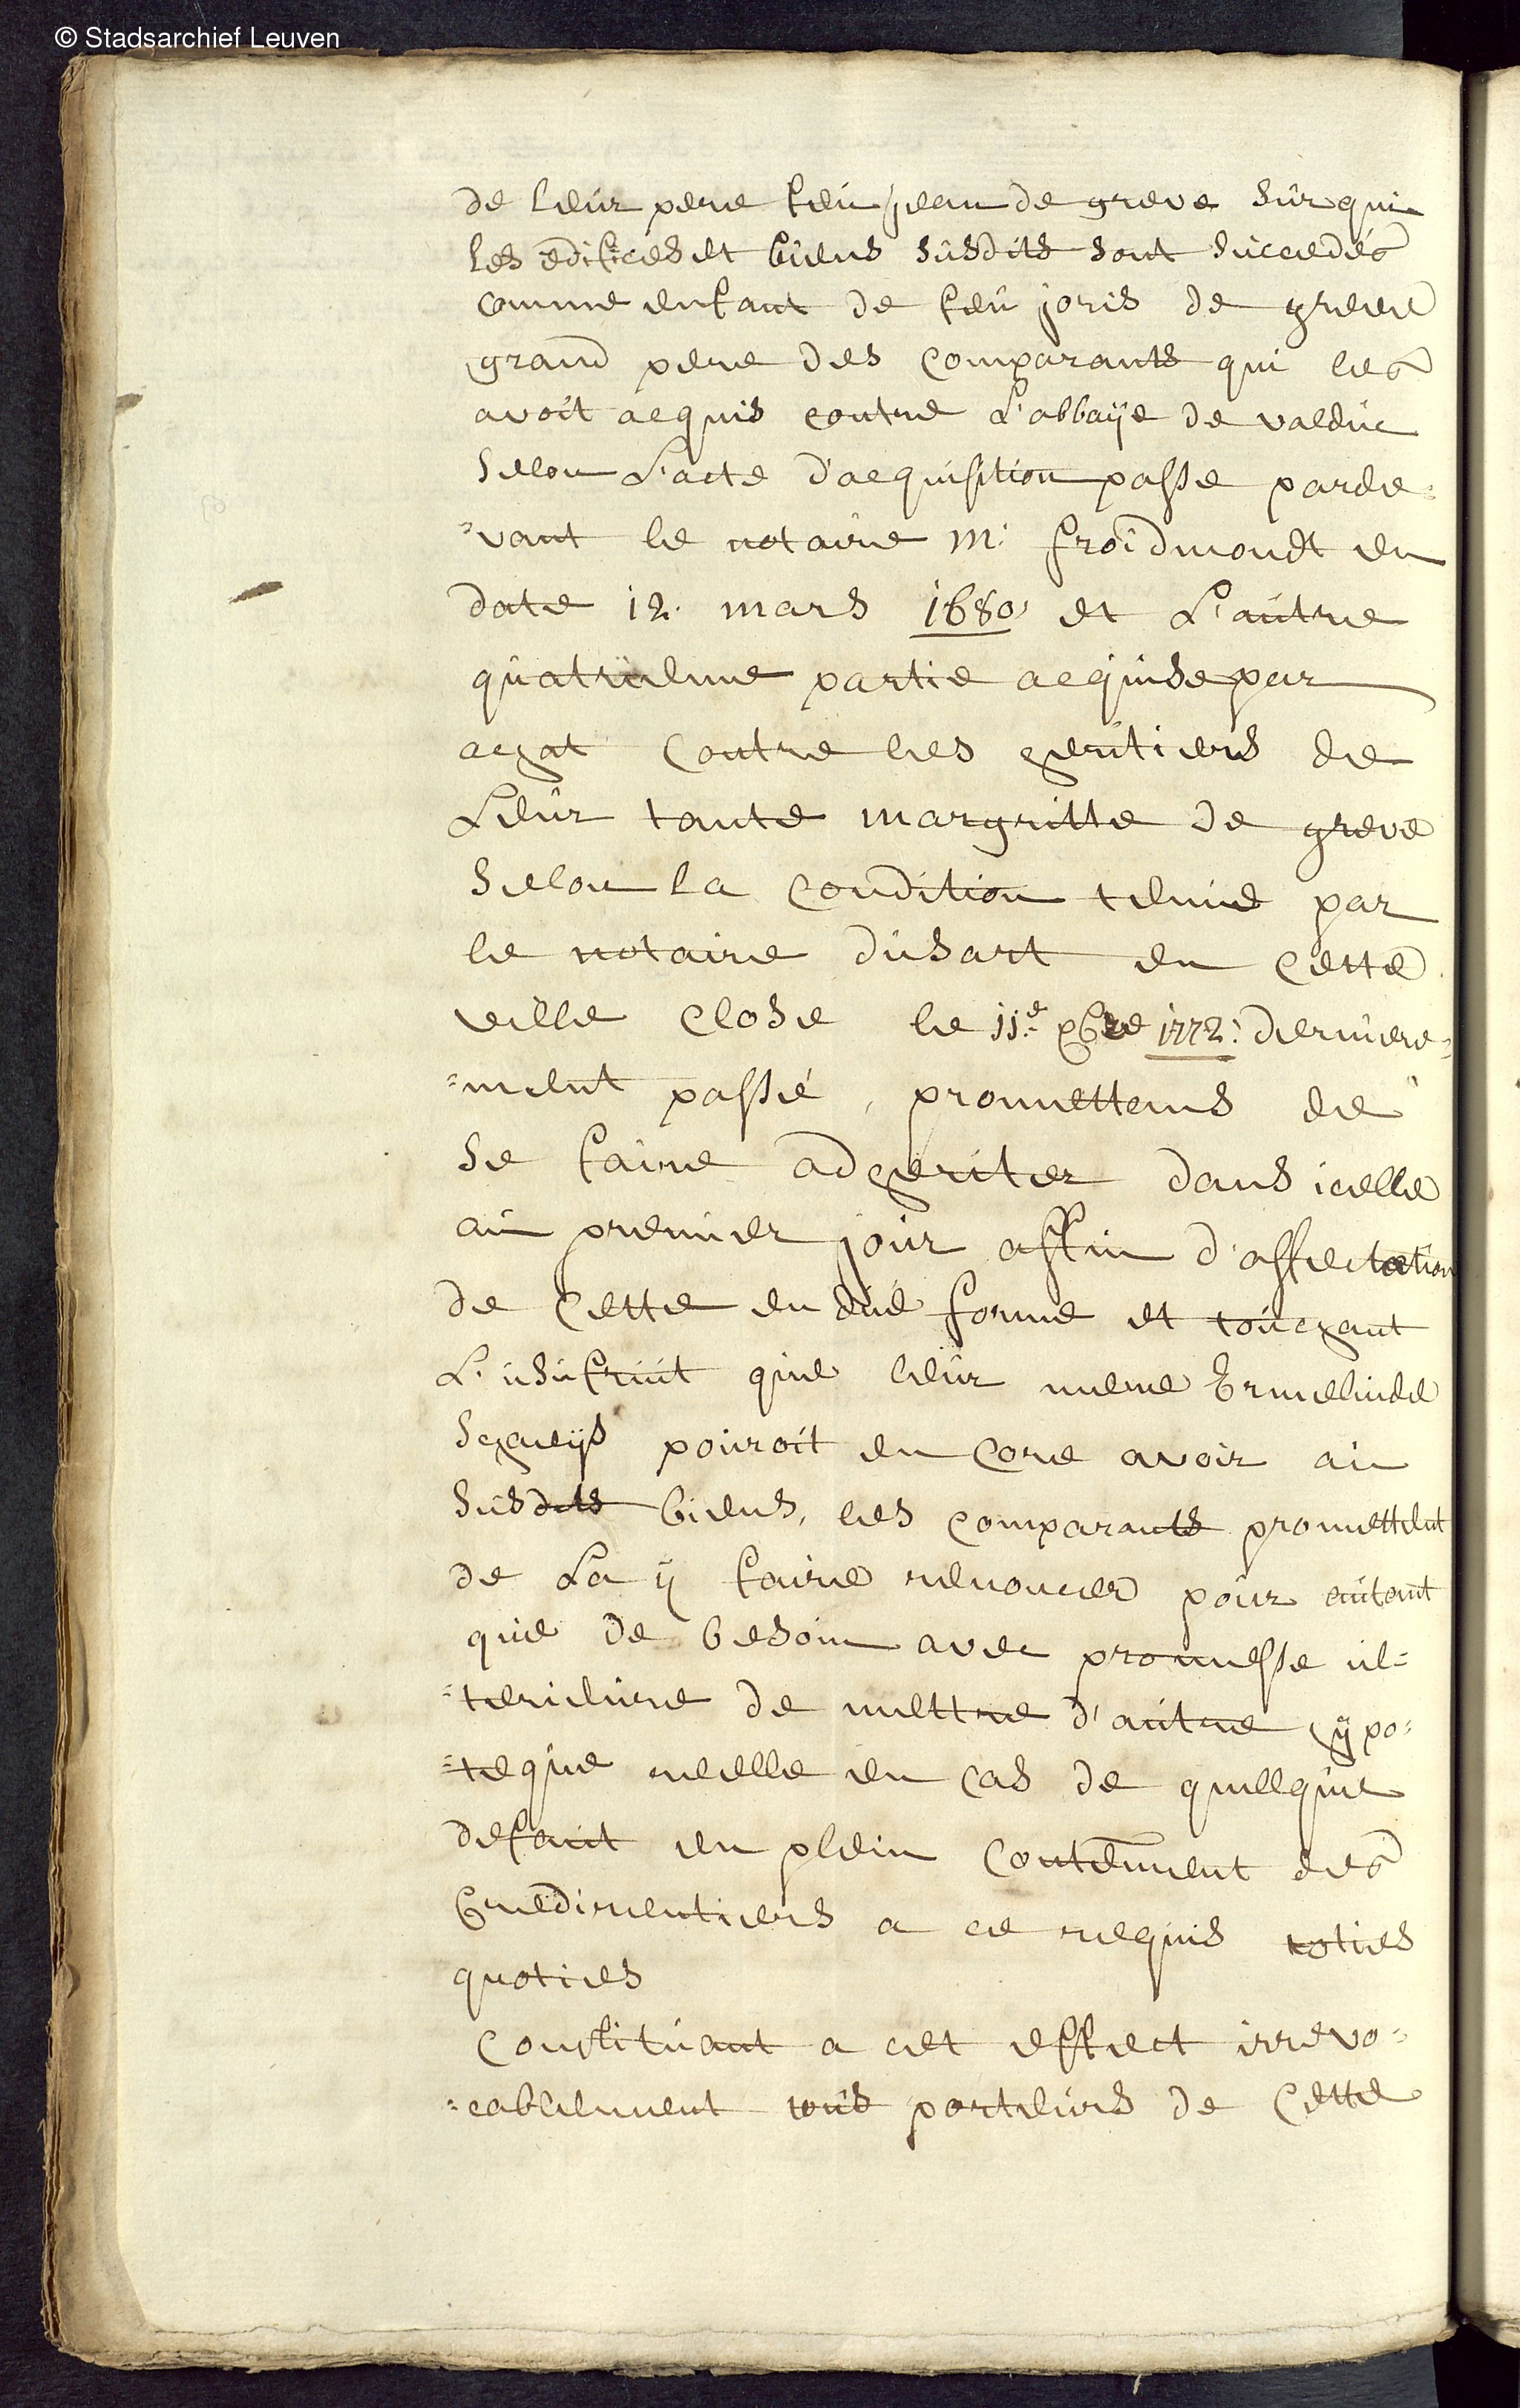 © Stadsarchief Leuven
de leur pere feu jean de greve sur qui
les edifices et biens susdits sont succedés
comme enfant de feu joris de greve
grand pere des comparants qui les
avoit acquis contre L'abbaÿe de valduc
selon L'acte d'acquisition passe parde=
=vant le notaire M: froidmondt en
date 12. mars 1680, et L'autre
quatrieme partie acquise par
achat contre les heritiers de
Leur tante margritte de greve
selon la condition tenue par
le notaire dusart en cette
ville close le 11e: xbre 1772: derniere=
=ment passé, promettans de
se faire adheriter dans icelle
au premier jour affin d'affectation
de cette en dué forme et touchant
L'usufruit que leur mere Ermelinde
Schaeÿs pouroit en core avoir au
susdits biens, les comparants promettent
de La ÿ faire renoncer pour autant
que de besoin avec promesse ul=
=terieure de mettre d'autre hÿpo=
=teque reelle en cas de quelque
defaut en plein contennent des
Credirentiers a ce requis toties
quoties
Constituant a cet effect irrevo=
=cablement tous porteurs de Cette